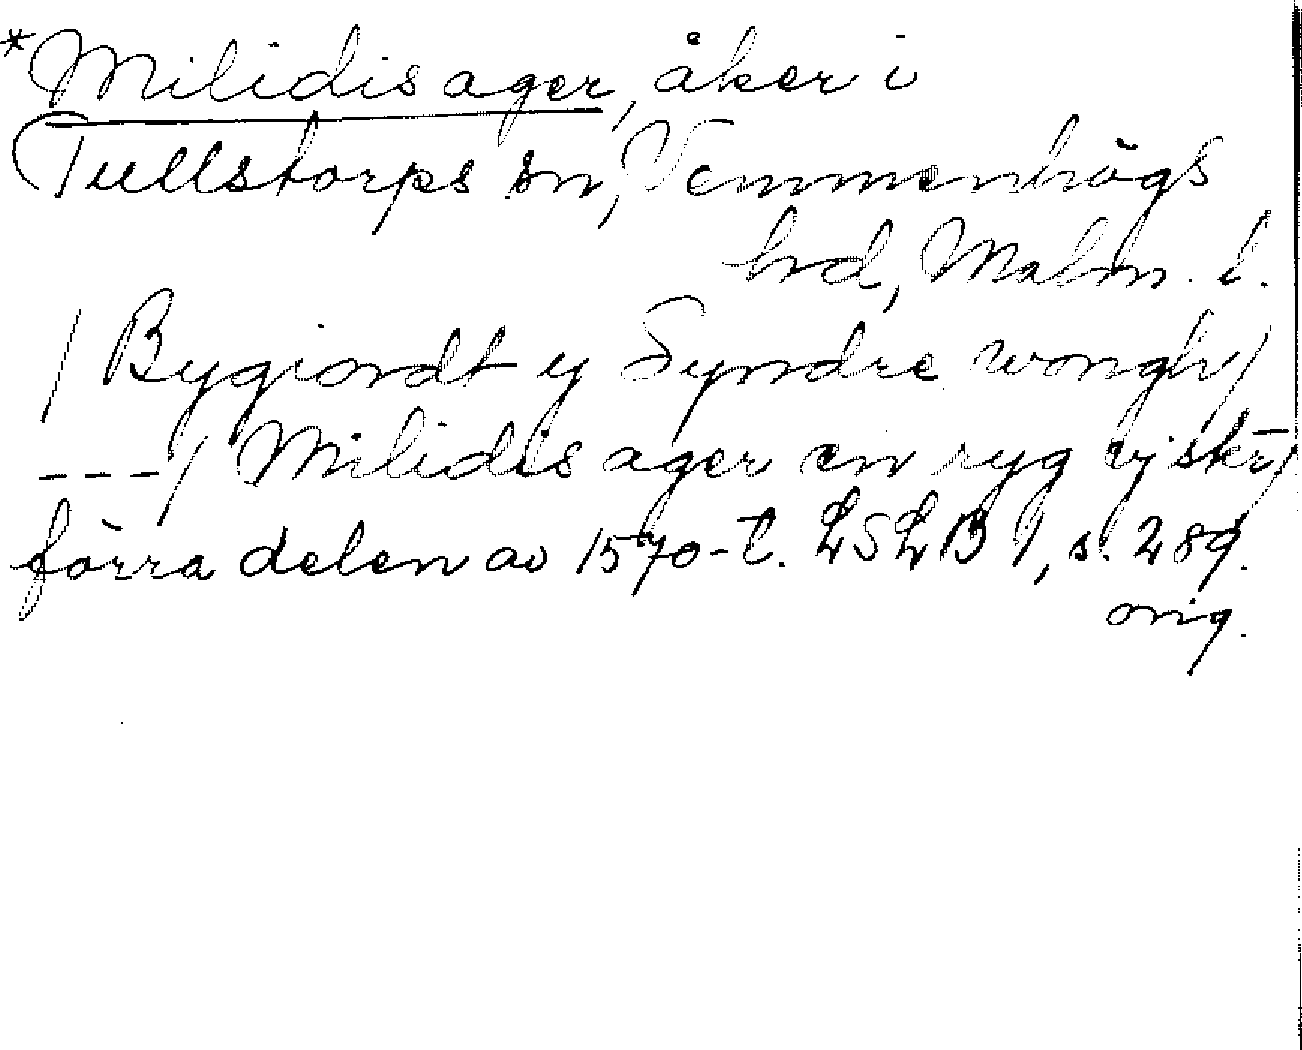 *Milidis ager, åker i
Tullstorps sn, Vemmenhögs
hrd, Malm. l.
/ Bygiordt y Syndre wongh/
---/ Milidis ager en ryg ejskr/
förra delen av 1570-t. LSLB I, s. 289.
orig.